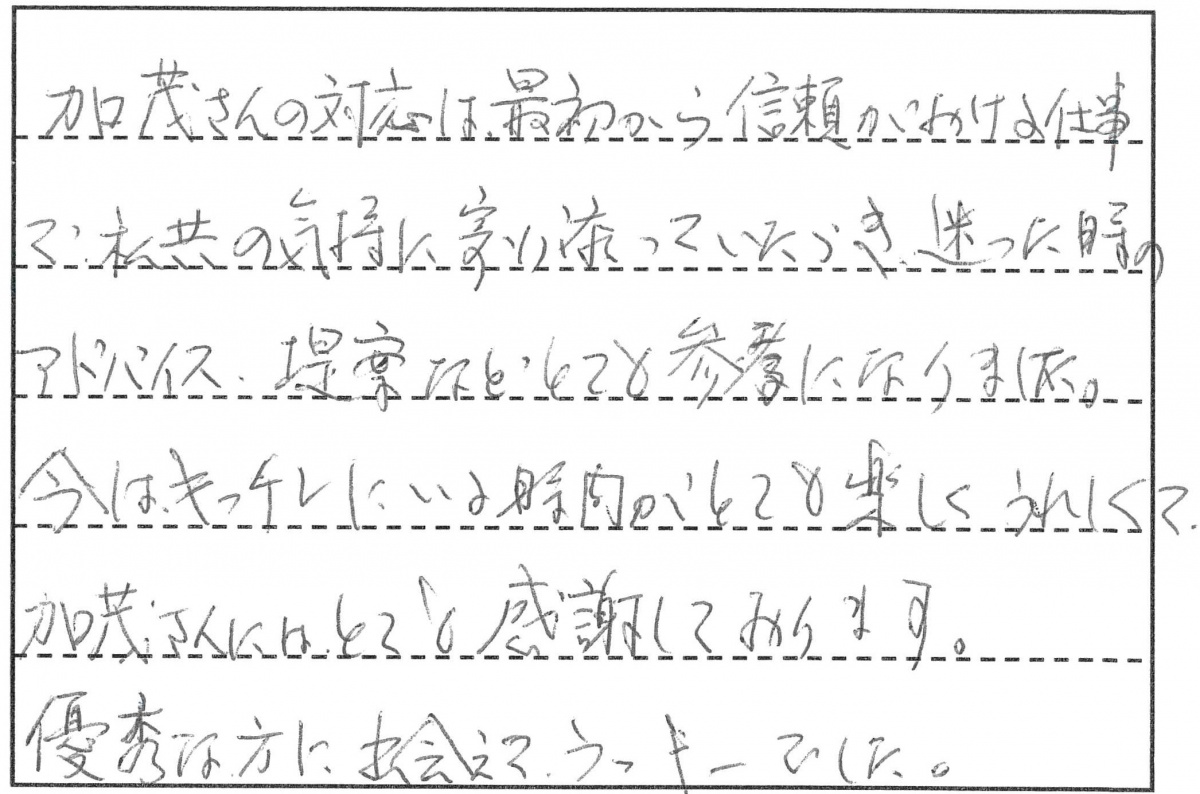 加茂さんの対応は、最初から信頼がおける仕事
で、私共の気持に寄り添っていただき、迷った時の
アドバイス、提案などとても参考になりました。
今は、キッチンにいる時間がとても楽しくうれしくて、
加茂さんには、とても感謝しております。
優秀な方に出会えて、ラッキーでした。